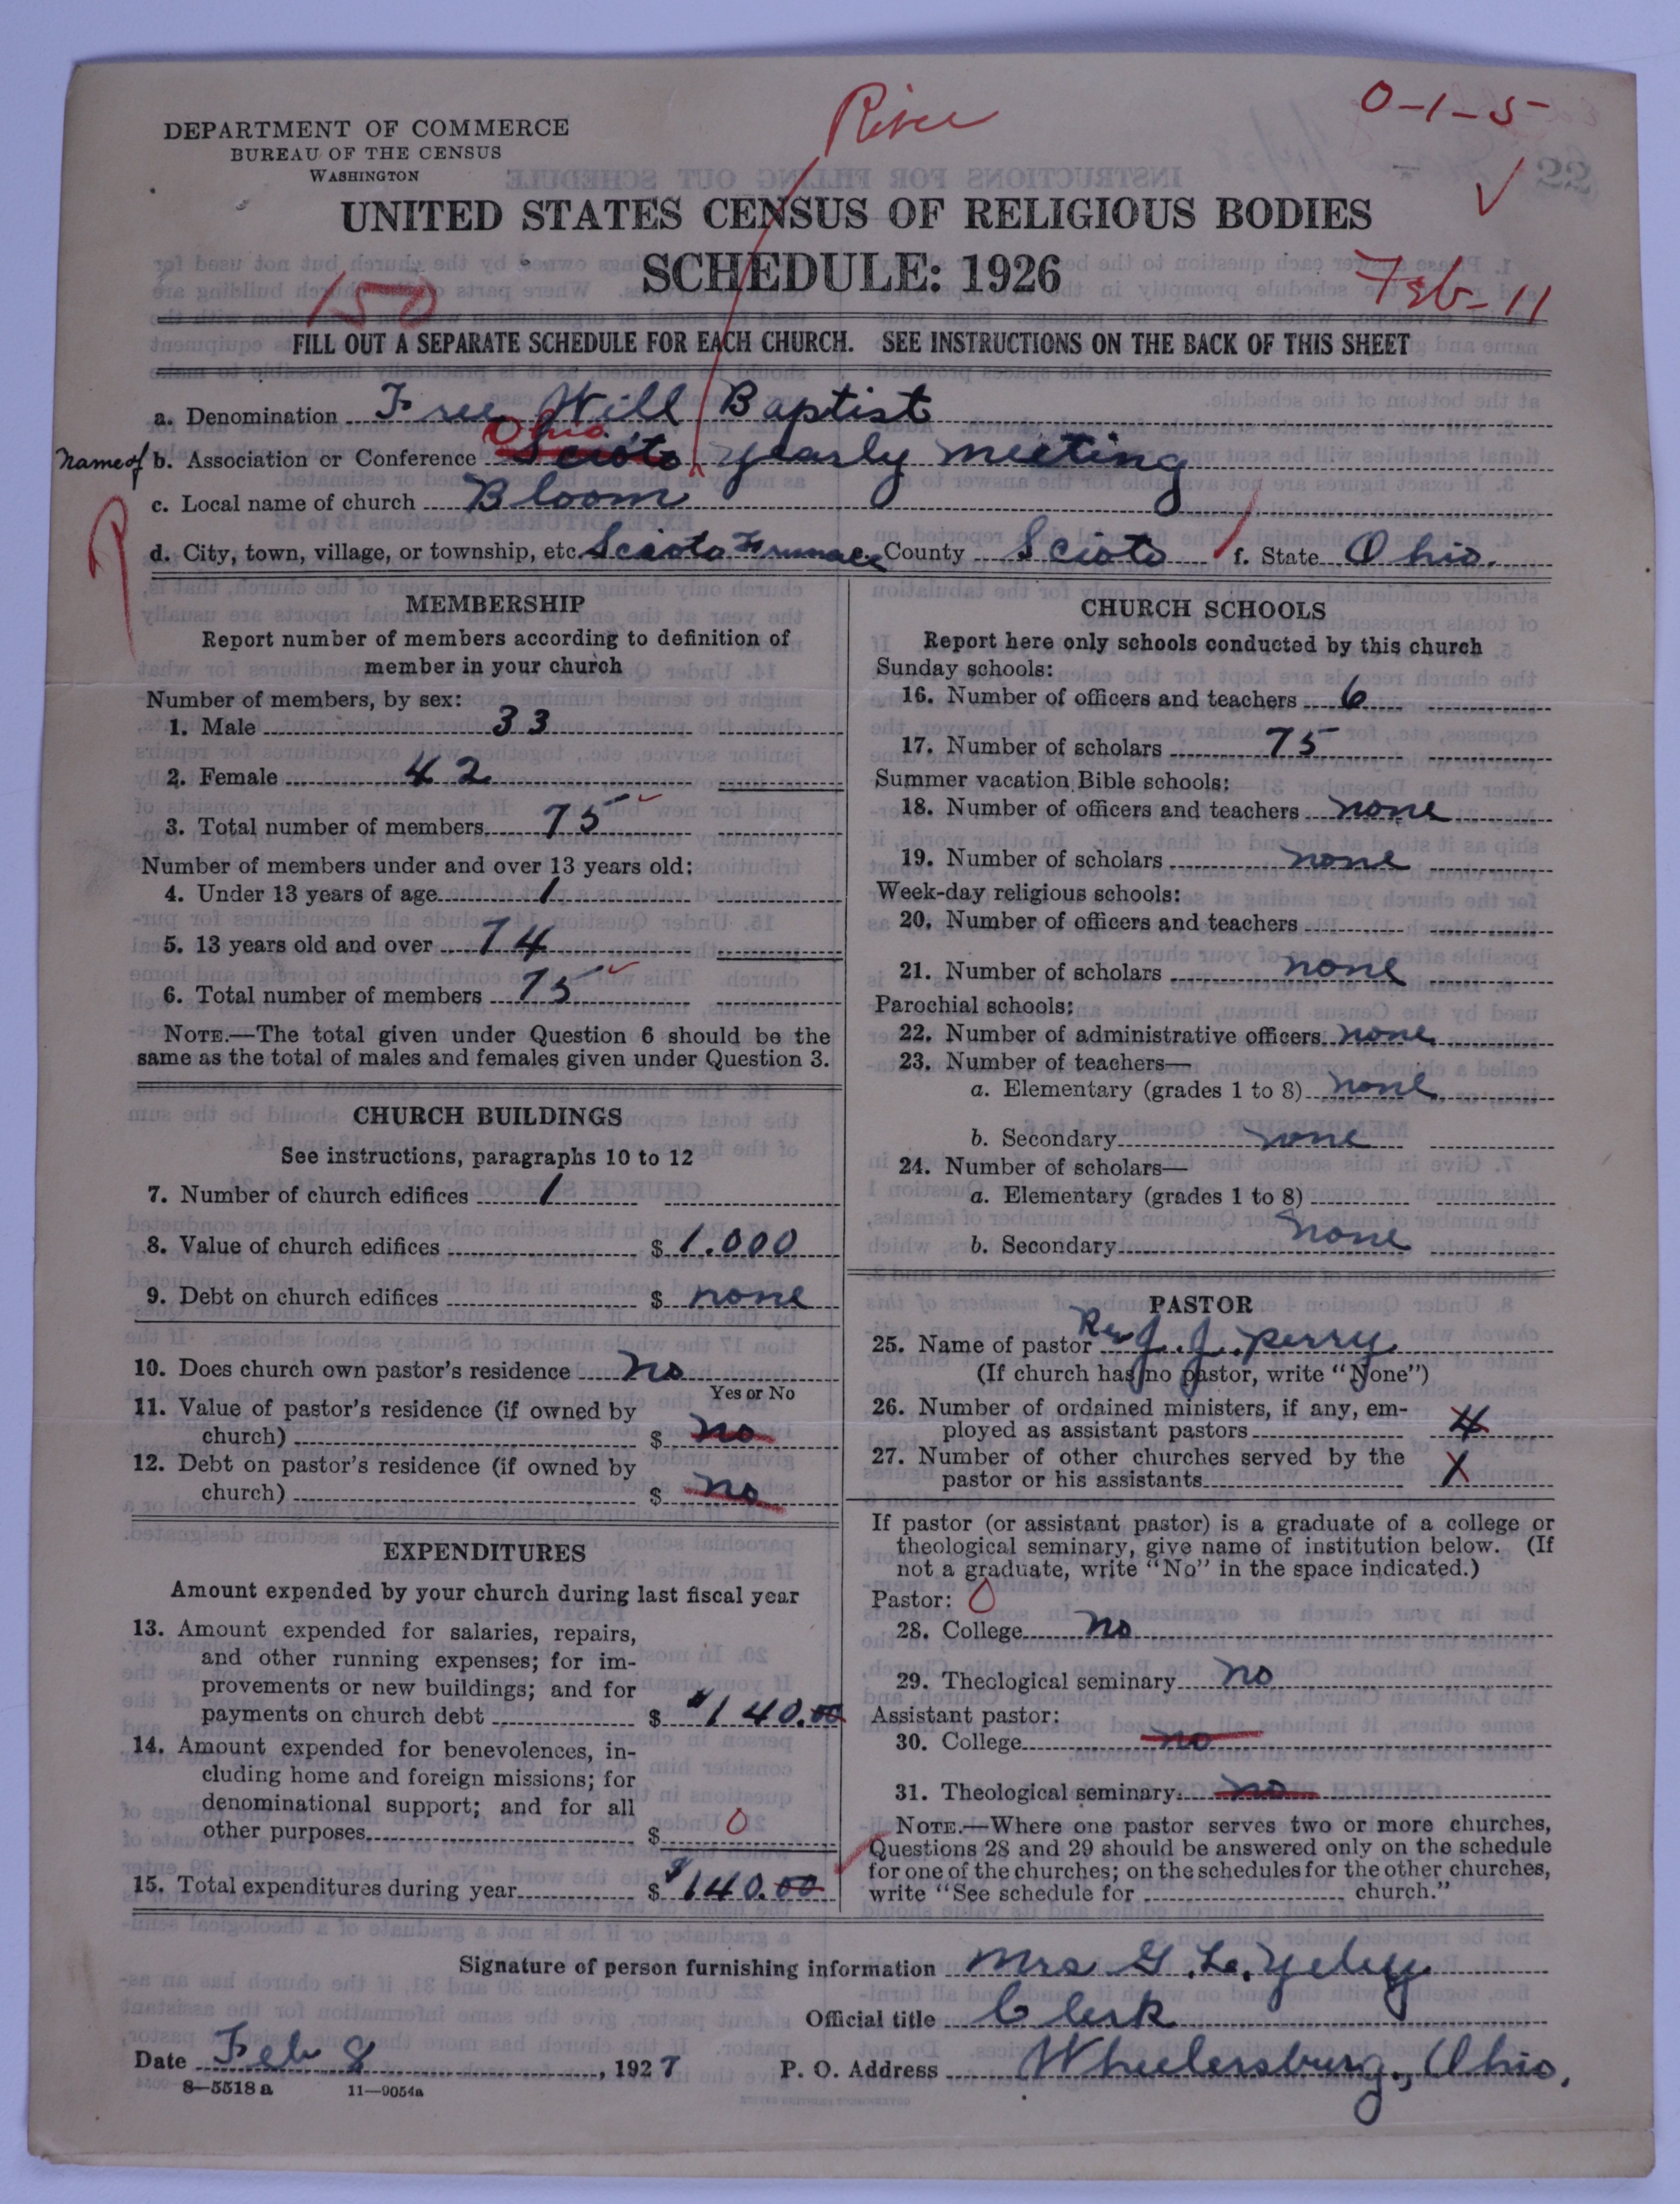 River
0-1-5
DEPARTMENT OF COMMERCE
BUREAU OF THE CENSUS
WASHINGTON
UNITED STATES CENSUS OF RELIGIOUS BODIES
SCHEDULE: 1926
150
Feb-11
FILL OUT A SEPARATE SCHEDULE FOR EACH CHURCH. SEE INSTRUCTIONS ON THE BACK OF THIS SHEET
a. Denomination Free Will Baptist
Ohio
Name of b. Association or Conference Scioto yearly meeting
c. Local name of church Bloom
d. City, town, village, or township, etc. Scioto Furnace e. County Scioto f. State Ohio.
MEMBERSHIP
Report number of members according to definition of
member in your church
Number of members, by sex:
1. Male 33
2. Female 42
3. Total number of members 75
Number of members under and over 13 years old:
4. Under 13 years of age 1
5. 13 years old and over 74
6. Total number of members 75
NOTE.—The total given under Question 6 should be the
same as the total of males and females given under Question 3.
CHURCH BUILDINGS
See instructions, paragraphs 10 to 12
7. Number of church edifices 1
8. Value of church edifices $ 1.000
9. Debt on church edifices $ none
10. Does church own pastor's residence no
Yes or No
11. Value of pastor's residence (if owned by
church) $ no
12. Debt on pastor's residence (if owned by
church) $ no
EXPENDITURES
Amount expended by your church during last fiscal year
13. Amount expended for salaries, repairs,
and other running expenses; for im-
provements or new buildings; and for
payments on church debt $ $140.00
14. Amount expended for benevolences, in-
cluding home and foreign missions; for
denominational support; and for all
other purposes $ 0
15. Total expenditures during year $ $140.00
CHURCH SCHOOLS
Report here only schools conducted by this church
Sunday schools:
16. Number of officers and teachers 6
17. Number of scholars 75
Summer vacation Bible schools:
18. Number of officers and teachers none
19. Number of scholars none
Week-day religious schools:
20. Number of officers and teachers
21. Number of scholars none
Parochial schools:
22. Number of administrative officers none
23. Number of teachers—
a. Elementary (grades 1 to 8) none
b. Secondary none
24. Number of scholars—
a. Elementary (grades 1 to 8)
b. Secondary none
PASTOR
25. Name of pastor Rev J. J. Perry
(If church has no pastor, write "None")
26. Number of ordained ministers, if any, em-
ployed as assistant pastors 4
27. Number of other churches served by the
pastor or his assistants 1
If pastor (or assistant pastor) is a graduate of a college or
theological seminary, give name of institution below. (If
not a graduate, write "No" in the space indicated.)
Pastor: 0
28. College no
29. Theological seminary no
Assistant pastor:
30. College no
31. Theological seminary no
NOTE.—Where one pastor serves two or more churches,
Questions 28 and 29 should be answered only on the schedule
for one of the churches; on the schedules for the other churches,
write "See schedule for church."
Signature of person furnishing information Mrs G. L.
Official title Clerk
Date Feb 8, 1927 P. O. Address Wheelersburg, Ohio.
8-5518a 11-9054a